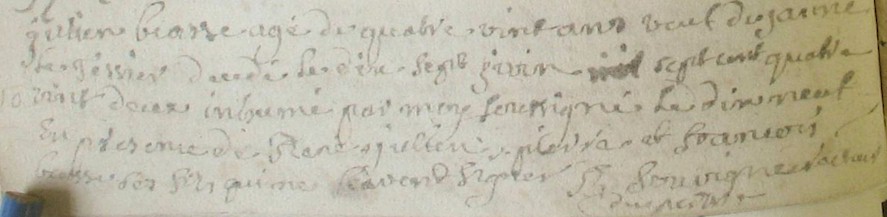 julien biasse agé de quatre vint ans veuf de janne
tessier decedé le dix sept juin mil sept cent quatre
vint deux inhumé par moy soussigné le dix neuf
en presence de René julien pierre et francois
biasse ses fils qui ne scavent signer